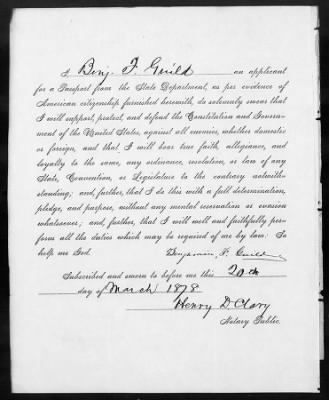 I Benj. F. Guild an applicant
for a Passport from the State Department, as per evidence of
American citizenship furnished herewith, do solemnly swear that
I will support, protect, and defend the Constitution and Govern-
ment of the United States, against all enemies, whether domestic
or foreign, and that I will bear true faith, allegiance, and
loyalty to the same, any ordinance, resolution, or law of any
State, Convention, or Legislature to the contrary notwith-
standing; and, further, that I do this with a full determination,
pledge, and purpose, without any mental reservation or evasion
whatsoever; and, further, that I will well and faithfully per-
form all the duties which may be required of me by law: So
help me God.
Benjamin F. Guild
Subscribed and sworn to before me this 20th
day of March 1878
Henry D Clary
Notary Public.